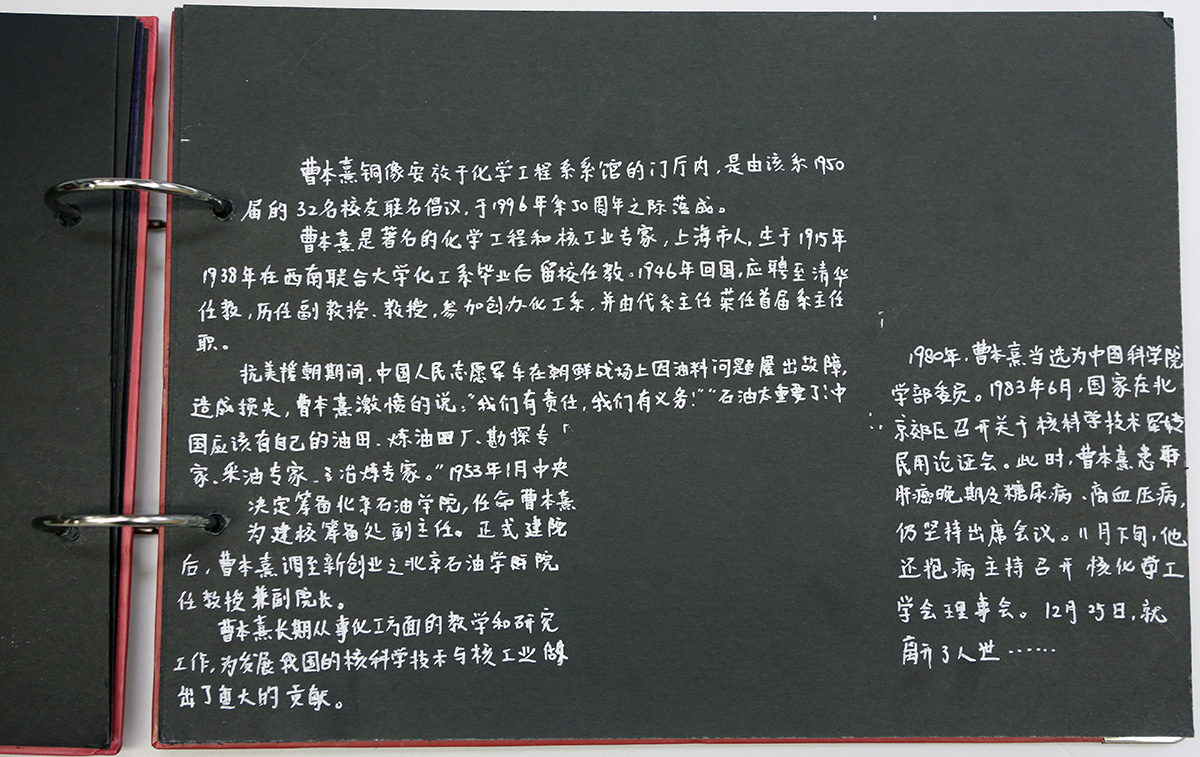 曹本熹铜像安放于化学工程系系馆的门厅内，是由该系1950
届的32名校友联名倡议，于1996年系50周年之际落成。
曹本熹是著名的化学工程和核工业专家，上海市人，生于1915年
1938年在西南联合大学化工系毕业后留校任教。1946年回国，应聘至清华
任教，历任副教授、教授，参加创办化工系，并由代系主任荣任首届系主任
职。
抗美援朝期间，中国人民志愿军车在朝鲜战场上因油料问题屡出故障，
造成损失，曹本熹激愤的说："我们有责任，我们有义务！""石油太重要了！中
国应该有自己的油田、炼油厂、勘探专
家、采油专家、冶炼专家。"1953年1月中央
决定筹备北京石油学院，任命曹本熹
为建校筹备处副主任。正式建院
后，曹本熹调至新创业之北京石油学院
任教授兼副院长。
曹本熹长期从事化工方面的教学和研究
工作，为发展我国的核科学技术与核工业做
出了重大的贡献。
1980年，曹本熹当选为中国科学院
学部委员。1983年6月，国家在北
京郊区召开关于核科学技术军转
民用论证会。此时，曹本熹患有
肝癌晚期及糖尿病、高血压病，
仍坚持出席会议。11月下旬，他
还抱病主持召开核化学工
学会理事会。12月25日，就
离开了人世……